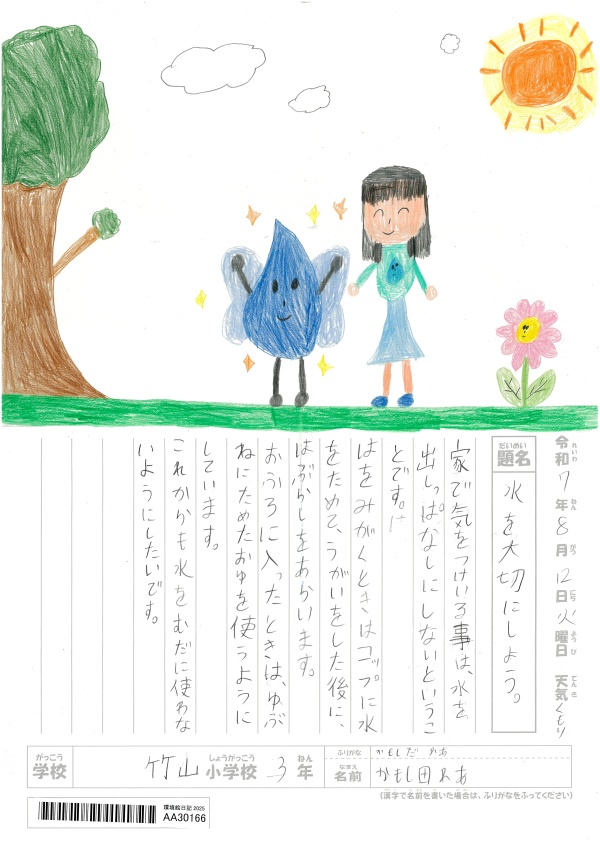 令和7年8月12日火曜日 天気くもり
れいわ ねん がつ にち ようび てんき
だいめい
題名 水を大切にしよう。
家で気をつけいる事は、水を
出しっぱなしにしないというこ
とです。
はをみがくときはコップに水
をためて、うがいをした後に、
はぶらしをあらいます。
おふろに入ったときは、ゆぶ
ねにためたおゆを使うように
しています。
これからも水をむだに使わな
いようにしたいです。
がっこう
学校 竹山小学校 3年
しょうがっこう ねん
ふりがな かもしだ れあ
なまえ
名前 かもし田れあ
(漢字で名前を書いた場合は、ふりがなをふってください)
環境絵日記2025
AA30166